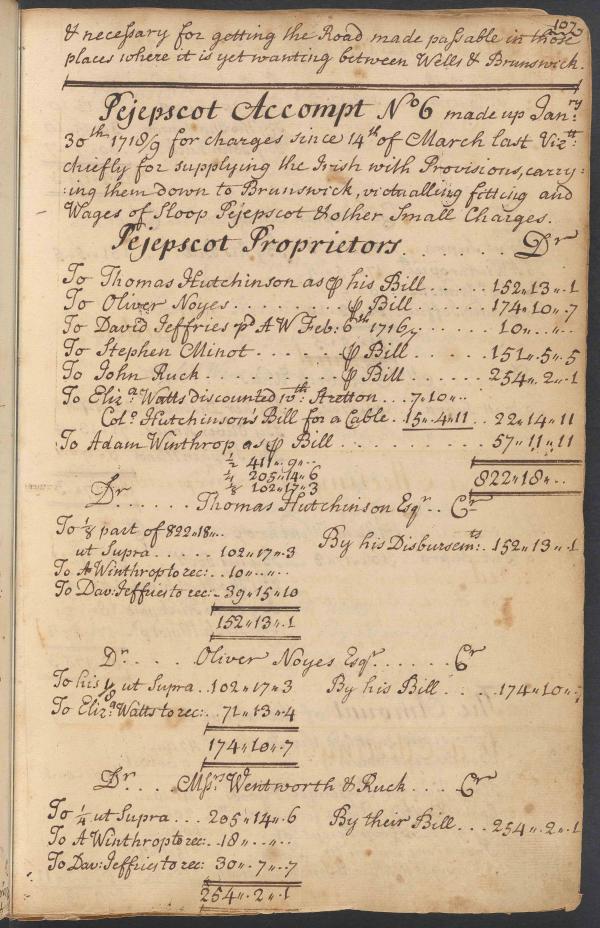 107
& necessary for getting the Road made passable in those
places where it is yet wanting between Wells & Brunswick.
Pejepscot Accompt No 6 made up Janry
30th 1718/9 for charges since 14th of March last Vizt:
chiefly for supplying the Irish with Provisions, carry-
:ing them down to Brunswick, victualling fitting and
Wages of Sloop Pejepscot & other Small Charges.
Pejepscot Proprietors . . . . . . Dr
To Thomas Hutchinson as ⅌ his Bill . . . . . 152 „ 13 „ 1
To Oliver Noyes . . . . . . . ⅌ Bill . . . . . 174 „ 10 „ 7
To David Jeffries pr A W Feb: 6th 1716/7 . . . . 10 „ . . „ . .
To Stephen Minot . . . . . . ⅌ Bill . . . . . 151 „ 5 „ 5
To John Ruck . . . . . . . . ⅌ Bill . . . . . 254 „ 2 „ 1
To Eliza Watts discounted wth Aretton . . . 7 „ 10 „ . .
Colo Hutchinson's Bill for a Cable . 15 „ 4 „ 11 . . 22 „ 14 „ 11
To Adam Winthrop as ⅌ Bill . . . . . . . . . . 57 „ 11 „ 11
½ 411 „ 9 „ . .
¼ 205 „ 14 „ 6
⅛ 102 „ 17 „ 3
822 „ 18 „ . .
Dr . . . . . . Thomas Hutchinson Esqr . . Cr
To ⅛ part of 822 „ 18 „ . .
ut Supra . . . . . 102 „ 17 „ 3 By his Disbursemts: 152 „ 13 „ 1
To A Winthrop to rec: . . 10 „ . . „ . .
To Dav: Jeffries to rec: . . 39 „ 15 „ 10
152 „ 13 „ 1
Dr . . . . Oliver Noyes Esqr . . . . . . Cr
To his ⅛ ut Supra . . 102 „ 17 „ 3 By his Bill . . . . 174 „ 10 „ 7
To Eliza: Watts to rec: . . 71 „ 13 „ 4
174 „ 10 „ 7
Dr . . . . Mssrs Wentworth & Ruck . . . . Cr
To ¼ ut Supra . . . 205 „ 14 „ 6 By their Bill . . . 254 „ 2 „ 1
To A Winthrop to rec: . . 18 „ . . „ . .
To Dav: Jeffries to rec: 30 „ 7 „ 7
254 „ 2 „ 1